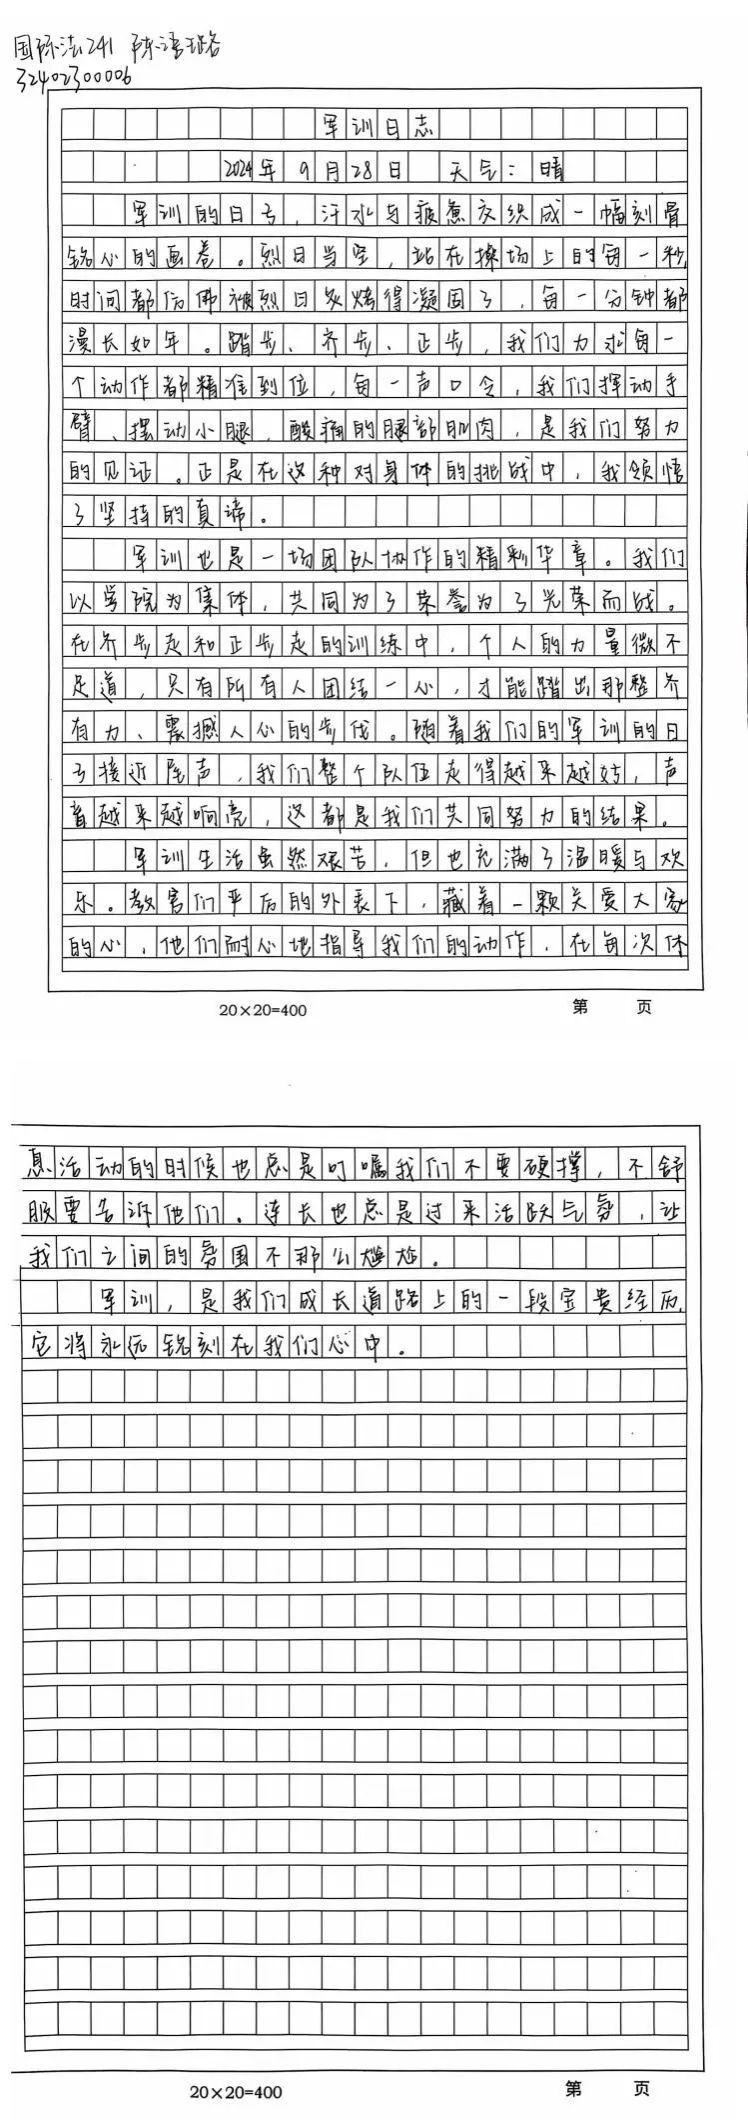 国际法241 陈语璐
32402300006
军训日志
2024年9月28日 天气：晴
军训的日子，汗水与疲惫交织成一幅刻骨
铭心的画卷。烈日当空，站在操场上的每一秒，
时间都仿佛被烈日炙烤得凝固了，每一分钟都
漫长如年。踏步、齐步、正步，我们力求每一
个动作都精准到位，每一声口令，我们挥动手
臂、摆动小腿，酸痛的腿部肌肉，是我们努力
的见证。正是在这种对身体的挑战中，我领悟
了坚持的真谛。
军训也是一场团队协作的精彩华章。我们
以学院为集体，共同为了荣誉为了光荣而战。
在齐步走和正步走的训练中，个人的力量微不
足道，只有所有人团结一心，才能踏出那整齐
有力、震撼人心的步伐。随着我们的军训的日
子接近尾声，我们整个队伍走得越来越好，声
音越来越响亮，这都是我们共同努力的结果。
军训生活虽然艰苦，但也充满了温暖与欢
乐。教官们严厉的外表下，藏着一颗关爱大家
的心，他们耐心地指导我们的动作，在每次休
20×20=400 第 页
息活动的时候也总是叮嘱我们不要硬撑，不舒
服要告诉他们。连长也总是过来活跃气氛，让
我们之间的氛围不那么尴尬。
军训，是我们成长道路上的一段宝贵经历，
它将永远铭刻在我们心中。
20×20=400 第 页